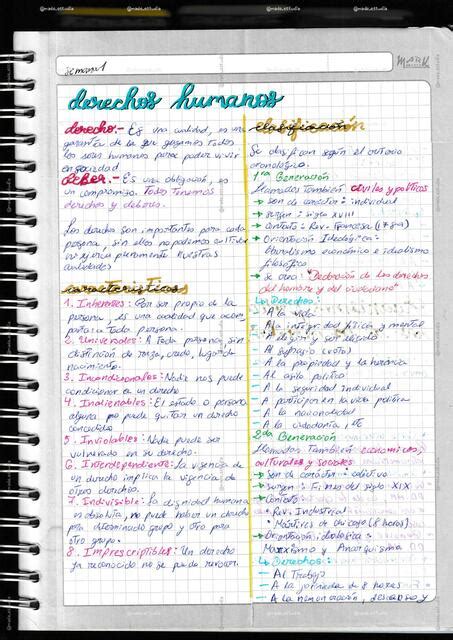 semana 1
derechos humanos
derecho.- Es una cualidad, es una
garantía de la que gozamos todos
los seres humanos para poder vivir
en sociedad
Deber.- Es una obligación, es
un compromiso. Todos tenemos
derechos y deberes.
Los derechos son importantes para cada
persona, sin ellos no podemos
vivir y ejercer plenamente nuestras
cualidades
características
1. Inherentes: Por ser propio de la
persona, es una cualidad que
porta a toda persona.
2. Universales: A toda persona, sin
distinción de raza, credo, lugar de
nacimiento.
3. Incondicionales: Nadie nos puede
condicionar a un derecho
4. Inalienables: El estado o persona
alguna no puede quitar un derecho
concedido
5. Inviolables: Nadie puede ser
vulnerado en su derecho.
6. Interdependiente: La vigencia de
un derecho implica la vigencia de
otros derechos.
7. Indivisible: La dignidad humana
es absoluta, no puede haber un derecho
pra determinado grupo y otro para
otro grupo.
8. Imprescriptibles: Un derecho
ya reconocido no se puede revocar.
clasificación
Se clasifican según el criterio
cronológico.
1ra Generación
llamados También civiles y políticos
→ son de carácter: individual
→ surgen: siglo XVIII
→ contexto: Rev. francesa (1789)
→ Orientación Ideológica:
liberalismo económico e idealismo
filosófico
→ se creó: "Declaración de los derechos
del hombre y del ciudadano"
↳ Derechos:
— A la vida
— A la integridad física y mental
— A elegir y ser elegido
— Al sufragio (voto)
— A la propiedad y la herencia
— Al asilo político
— A la seguridad individual
— A participar en la vida política
— A la nacionalidad
— A la ciudadanía, etc
2da Generación
llamados También económicos,
culturales y sociales
→ son de carácter: colectivo
→ surgen: Fines del siglo XIX
→ Contexto:
• Rev. Industrial
• Mártires de chicago (8 horas)
→ Orientación ideológica:
Marxismo y Anarquismo
↳ Derechos:
— Al Trabajo
— A la jornada de 8 horas
— A la remuneración, descanso y